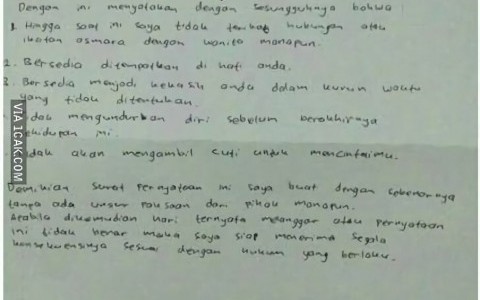 Dengan ini menyatakan dengan sesungguhnya bahwa
1. Hingga saat ini saya tidak terikat hubungan atau
ikatan asmara dengan wanita manapun.
2. Bersedia ditempatkan di hati anda.
3. Bersedia menjadi kekasih anda dalam kurun waktu
yang tidak ditentukan.
dak mengundurkan diri sebelum berakhirnya
ehidupan ini.
dak akan mengambil cuti untuk mencintaimu.
Demikian surat pernyataan ini saya buat dengan sebenarnya
tanpa ada unsur paksaan dari pihak manapun.
Apabila dikemudian hari ternyata melanggar atau pernyataan
ini tidak benar maka saya siap menerima segala
konsekwensinya sesuai dengan hukum yang berlaku.
VIA 1CAK.COM